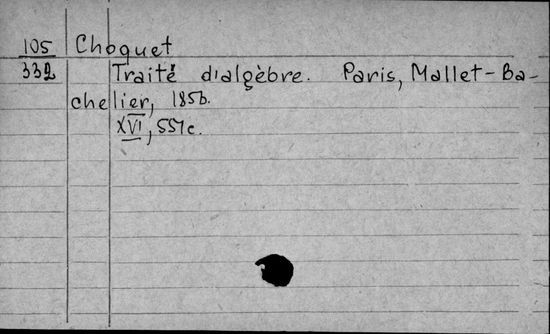 105 Choquet
332 Traité d'algèbre. Paris, Mallet-Ba-
chelier, 1856.
XVI, 551c.